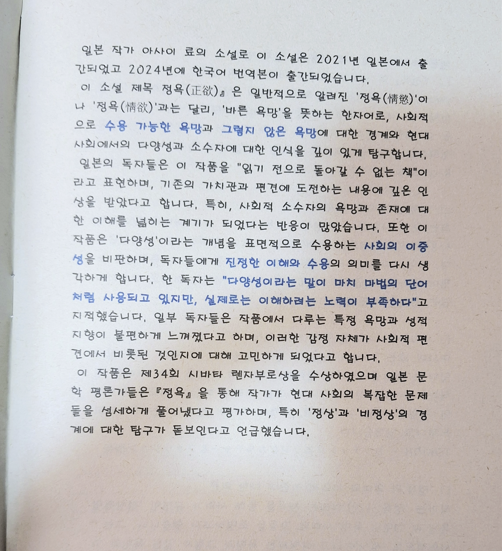 일본 작가 아사이 료의 소설로 이 소설은 2021년 일본에서 출
간되었고 2024년에 한국어 번역본이 출간되었습니다.
이 소설 제목 정욕(正欲)』은 일반적으로 알려진 '정욕(情慾)'이
나 '정욕(情欲)'과는 달리, '바른 욕망'을 뜻하는 한자어로, 사회적
으로 수용 가능한 욕망과 그렇지 않은 욕망에 대한 경계와 현대
사회에서의 다양성과 소수자에 대한 인식을 깊이 있게 탐구합니다.
일본의 독자들은 이 작품을 "읽기 전으로 돌아갈 수 없는 책"이
라고 표현하며, 기존의 가치관과 편견에 도전하는 내용에 깊은 인
상을 받았다고 합니다. 특히, 사회적 소수자의 욕망과 존재에 대
한 이해를 넓히는 계기가 되었다는 반응이 많았습니다. 또한 이
작품은 '다양성'이라는 개념을 표면적으로 수용하는 사회의 이중
성을 비판하며, 독자들에게 진정한 이해와 수용의 의미를 다시 생
각하게 합니다. 한 독자는 "다양성이라는 말이 마치 마법의 단어
처럼 사용되고 있지만, 실제로는 이해하려는 노력이 부족하다"고
지적했습니다. 일부 독자들은 작품에서 다루는 특정 욕망과 성적
지향이 불편하게 느껴졌다고 하며, 이러한 감정 자체가 사회적 편
견에서 비롯된 것인지에 대해 고민하게 되었다고 합니다.
이 작품은 제34회 시바타 렌자부로상을 수상하였으며 일본 문
학 평론가들은『정욕』을 통해 작가가 현대 사회의 복잡한 문제
들을 섬세하게 풀어냈다고 평가하며, 특히 '정상'과 '비정상'의 경
계에 대한 탐구가 돋보인다고 언급했습니다.